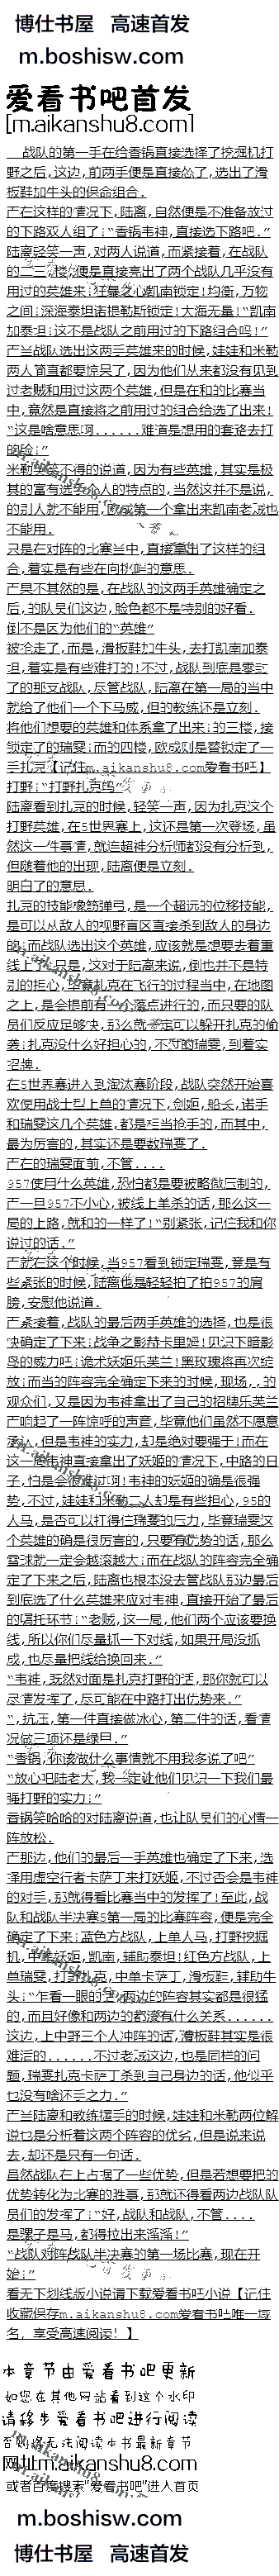 博仕书屋 高速首发
m.boshisw.com
爱看书吧首发
[m.aikanshu8.com]
战队的第一手在给香锅直接选择了挖掘机打
野之后,这边,前两手便是直接怂了,选出了滑
板鞋加牛头的保命组合.
而在这样的情况下,陆离,自然便是不准备放过
的下路双人组了:“香锅韦神,直接选下路吧.”
陆离轻笑一声,对两人说道,而紧接着,在战队
的二三楼,便是直接亮出了两个战队几乎没有
用过的英雄来:狂暴之心凯南锁定!均衡,万物
之间:深海泰坦诺提勒斯锁定!大海无量!“凯南
加泰坦:这不是战队之前用过的下路组合吗!”
而当战队选出这两手英雄来的时候,娃娃和米勒
两人简直都要惊呆了,因为他们从来都没有见到
过老贼和用过这两个英雄,但是在和的比赛当
中,竟然是直接将之前用过的组合给选了出来!
“这是啥意思啊......难道是想用的套路去打
米勒哭笑不得的说道,因为有些英雄,其实是极
其的富有选手个人的特点的,当然这并不是说,
的别人就不能用,
不能用.
只是在对阵的比赛当中,直接拿出了这样的组
合,着实是有些在向挑衅的意思.
而果不其然的是,在战队的这两手英雄确定之
后,的队员们这边,脸色都不是特别的好看.
倒不是因为他们的“英雄”
被抢走了,而是,滑板鞋加牛头,去打凯南加泰
坦,着实是有些难打的!不过,战队到底是零封
了的那支战队,尽管战队,陆离在第一局的当中
就给了他们一个下马威,但的教练还是立刻.
将他们想要的英雄和体系拿了出来:的三楼,接
锁定了的瑞雯:而的四楼,欧成则是替锁定了一
手扎克【记住m.aikanshu8.com爱看书吧】
打野:“打野扎克吗”
陆离看到扎克的时候,轻笑一声,因为扎克这个
打野英雄,在S世界赛上,这还是第一次登场,虽
然这一件事情,就连超神分析师都没有分析到,
但随着他的出现,陆离便是立刻.
明白了的意思.
扎克的技能橡筋弹弓,是一个超远的位移技能,
是可以从敌人的视野盲区直接杀到敌人的身边
的,而战队选出这个英雄,应该就是想要去着重
线上了.只是,这对于陆离来说,倒也并不是特
别的担心,毕竟扎克在飞行的过程当中,在地图
之上,是会提前有一个落点进行的,而只要的队
员们反应足够快,那么就一定可以躲开扎克的偷
袭:扎克没什么好担心的,不过的瑞雯,到着实
在S世界赛进入到淘汰赛阶段,战队突然开始喜
欢使用战士型上单的情况下,剑姬,船长,诺手
和瑞雯这几个英雄,都是相当拾手的,而其中,
最为厉害的,其实还是要数瑞雯了.
而在的瑞雯面前,不管....
957使用什么英雄,恐怕都是要被略微压制的,
而一旦957不小心,被线上单杀的话,那么这一
局的上路,就和的一样了!“别紧张,记住我和你
说过的话.”
而就在这个时候,当957看到锁定瑞雯,竟是有
些紧张的时候,陆离也是轻轻拍了拍957的肩
膀,安慰他说道.
而紧接着,战队的最后两手英雄的选择,也是很
快确定了下来:战争之影赫卡里姆!见识下暗影
岛的威力吧:诡术妖姬乐芙兰!黑玫瑰将再次绽
放:而当的阵容完全确定下来的时候,现场,,的
观众们,又是因为韦神拿出了自己的招牌乐芙兰
而响起了一阵惊呼的声音,毕竟他们虽然不愿意
承认,但是韦神的实力,却是绝对要强于!而在
这一局韦神直接拿出了妖姬的情况下,中路的日
子,怕是会很难过啊!韦神的妖姬的确是很强
势,不过,娃娃和米勒二人却是有些担心,95的
人马,是否可以打得住瑞雯的压力,毕竟瑞雯这
个英雄的确是很厉害的,只要有优势的话,那么
雪球就一定会越滚越大:而在战队的阵容完全确
定了下来之后,陆离也根本没去管战队那边最后
到底选了什么英雄来应对韦神,直接开始了最后
的嘱托环节:“老贼,这一局,他们两个应该要换
线,所以你们尽量抓一下对线,如果开局没抓
成,也尽量把线给换回来.”
“韦神,既然对面是扎克打野的话,那你就可以
尽情发挥了,尽可能在中路打出优势来.”
“,抗压,第一件直接做冰心,第二件的话,看情
况做三项还是绿甲.”
“香锅,你该做什么事情就不用我多说了吧”
“放心吧陆老大,我一定让他们见识一下我们最
强打野的实力:”
香锅笑哈哈的对陆离说道,也让队员们的心情一
阵放松.
而那边,他们的最后一手英雄也确定了下来,选
择用虚空行者卡萨丁来打妖姬,不过否会是韦神
的对手,那就得看比赛当中的发挥了!至此,战
队和战队半决赛S第一局的比赛阵容,便是完全
确定了下来:蓝色方战队,上单人马,打野挖掘
机,中单妖姬,凯南,辅助泰坦!红色方战队,上
单瑞雯,打野扎克,中单卡萨丁,滑板鞋,辅助牛
头:“乍看一眼的话,两边的阵容其实都是很猛
的,而且好像和两边的都没有什么关系......
这边,上中野三个人冲阵的话,滑板鞋其实是很
难活的......不过老贼这边,也是同样的问
题,瑞雯扎克卡萨丁杀到自己身边的话,他似乎
也没有啥还手之力.”
而当陆离和教练握手的时候,娃娃和米勒两位解
说也是分析着这两个阵容的优劣,但是说来说
去,却还是只有一句话.
虽然战队在上占据了一些优势,但是若想要把的
优势转化为比赛的胜事,那就还得看两边战队队
员们的发挥了:“好,战队和战队,不管....
是骡子是马,都得拉出来溜溜!”
“战队对阵战队半决赛的第一场比赛,现在开
始:”
看无下划线版小说请下载爱看书吧小说【记住
收藏保存m.aikanshu8.com爱看书吧唯一域
名,享受高速阅读!】
本章节由爱看书吧更新
如您在其他网站看到这个水印
请移步爱看书吧进行阅读
否则将无法阅读本书最新章节
网址m.aikanshu8.com
或者百度搜索“爱看书吧”进入首页
m.boshisw.com
博仕书屋 高速首发